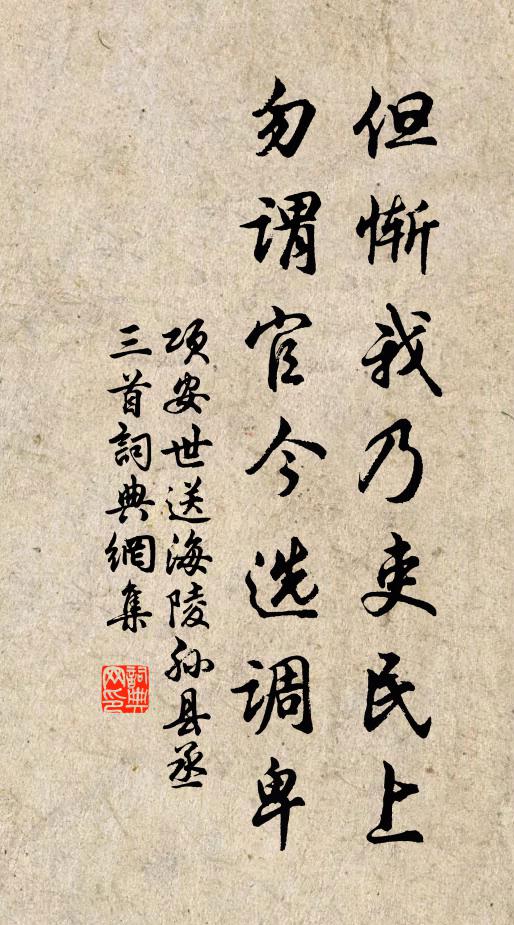 但惭我乃吏民上
勿谓官今选调卑
项安世送海陵孙县丞
三首詞典網集
詞典
网印